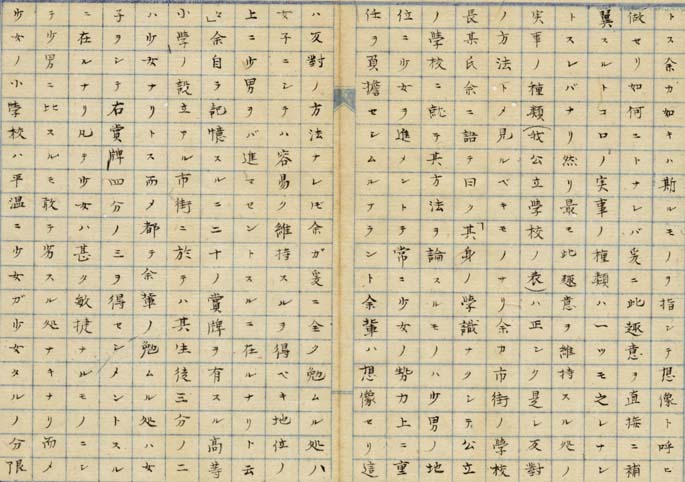 トス余ガ如キハ斯ルモノヲ指シテ想像ト呼ビ
做セリ如何ニトナレバ爰ニ此趣意ヲ直接ニ補
翼スルトコロノ実事ノ種類ハ一ツモ之レナシ
トスレバナリ然リ最モ此趣意ヲ維持スル処ノ
実事ノ種類(我公立学校ノ表)ハ正シク是レ反對
ノ方法トメ見ルベキモノナリ余カ市街ノ學校
長某氏余ニ語テ曰ク「其身ノ學識ナクシテ公立
ノ學校ニ就テ其方法ヲ論スルモノハ少男ノ地
位ニ少女ヲ進メントテ常ニ少女ノ勢力上ニ重
任ヲ負擔セシムルアラント余輩ハ想像セリ這
ハ反對ノ方法ナレ𪜈余ガ爰ニ全ク勉ムル処ハ
女子ニシテハ容易ク維持スルヲ得ベキ地位ノ
上ニ少男ヲバ進マセントスルニ在ルナリト云
」余自ラ記憶スルニ二十ノ賞牌ヲ有スル高等
小學ノ設立アル市街ニ於テハ其生徒三分ノ二
ハ少女ナリトス而メ都テ余輩ノ勉ムル処ハ女
子ヲシテ右賞牌四分ノ三ヲ得センメントスル
ニ在ルナリ凡テ少女ハ甚タ敏捷ナルモノニシ
テ少男ニ比スルモ敢テ劣スル処ナキナリ而メ
少女ノ小學校ハ平温ニ少女ガ少女タルノ分限